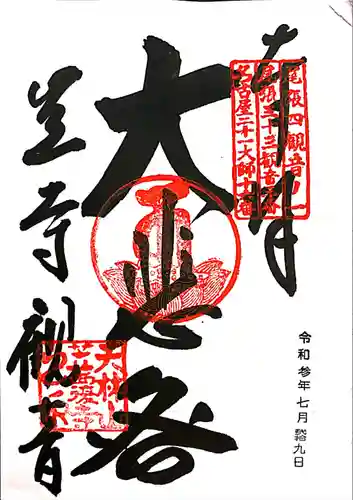 奉拝
尾張四観音ノ一
尾張三十三観音一番
名古屋二十一大師十番
大悲閣
笠寺観音
天林山
笠覆寺
令和参年七月弐拾九日